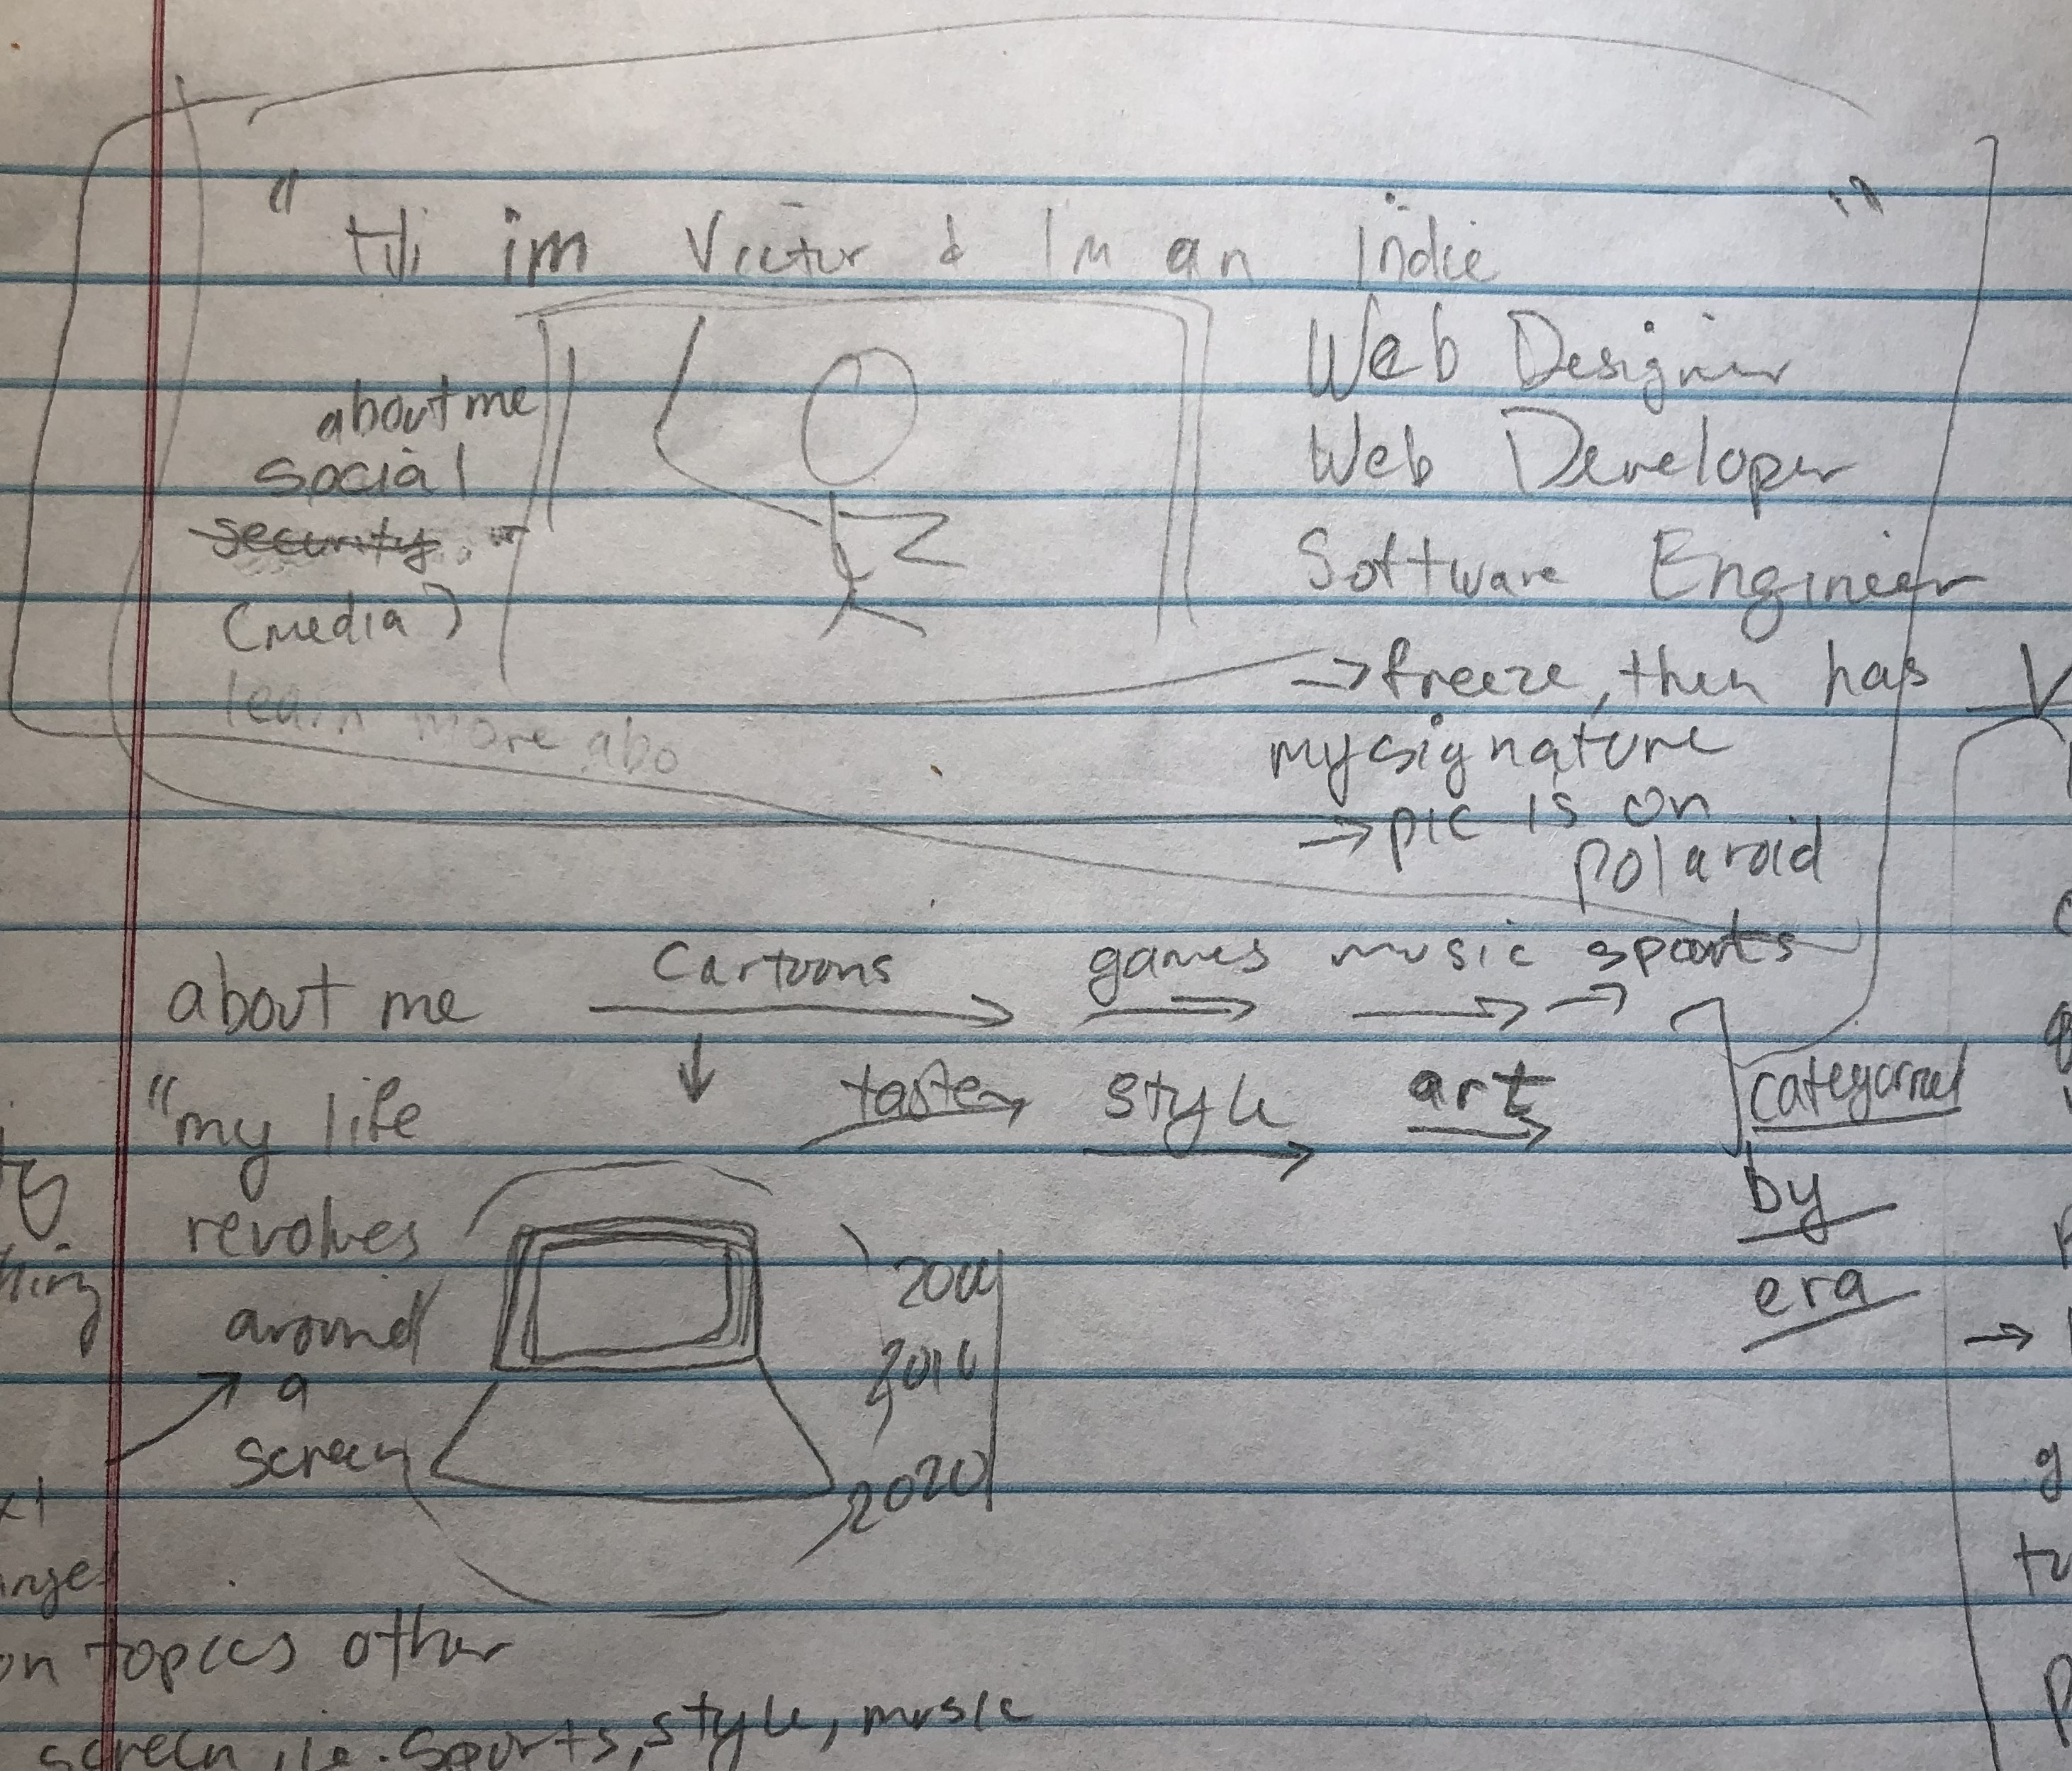 "Hi im Victor & Im an indie"
Web Designer
Web Developer
Software Engineer
about me
social
security
(media)
learn more abo
→ freeze, then has
my signature
→ pic is on
polaroid
about me
cartoons → games → music → sports →
↓ taste → style → art →
categorized
by
era
"my life
revolves
around
a
screen
2020
on topics other
screen, i.e. sports, style, music